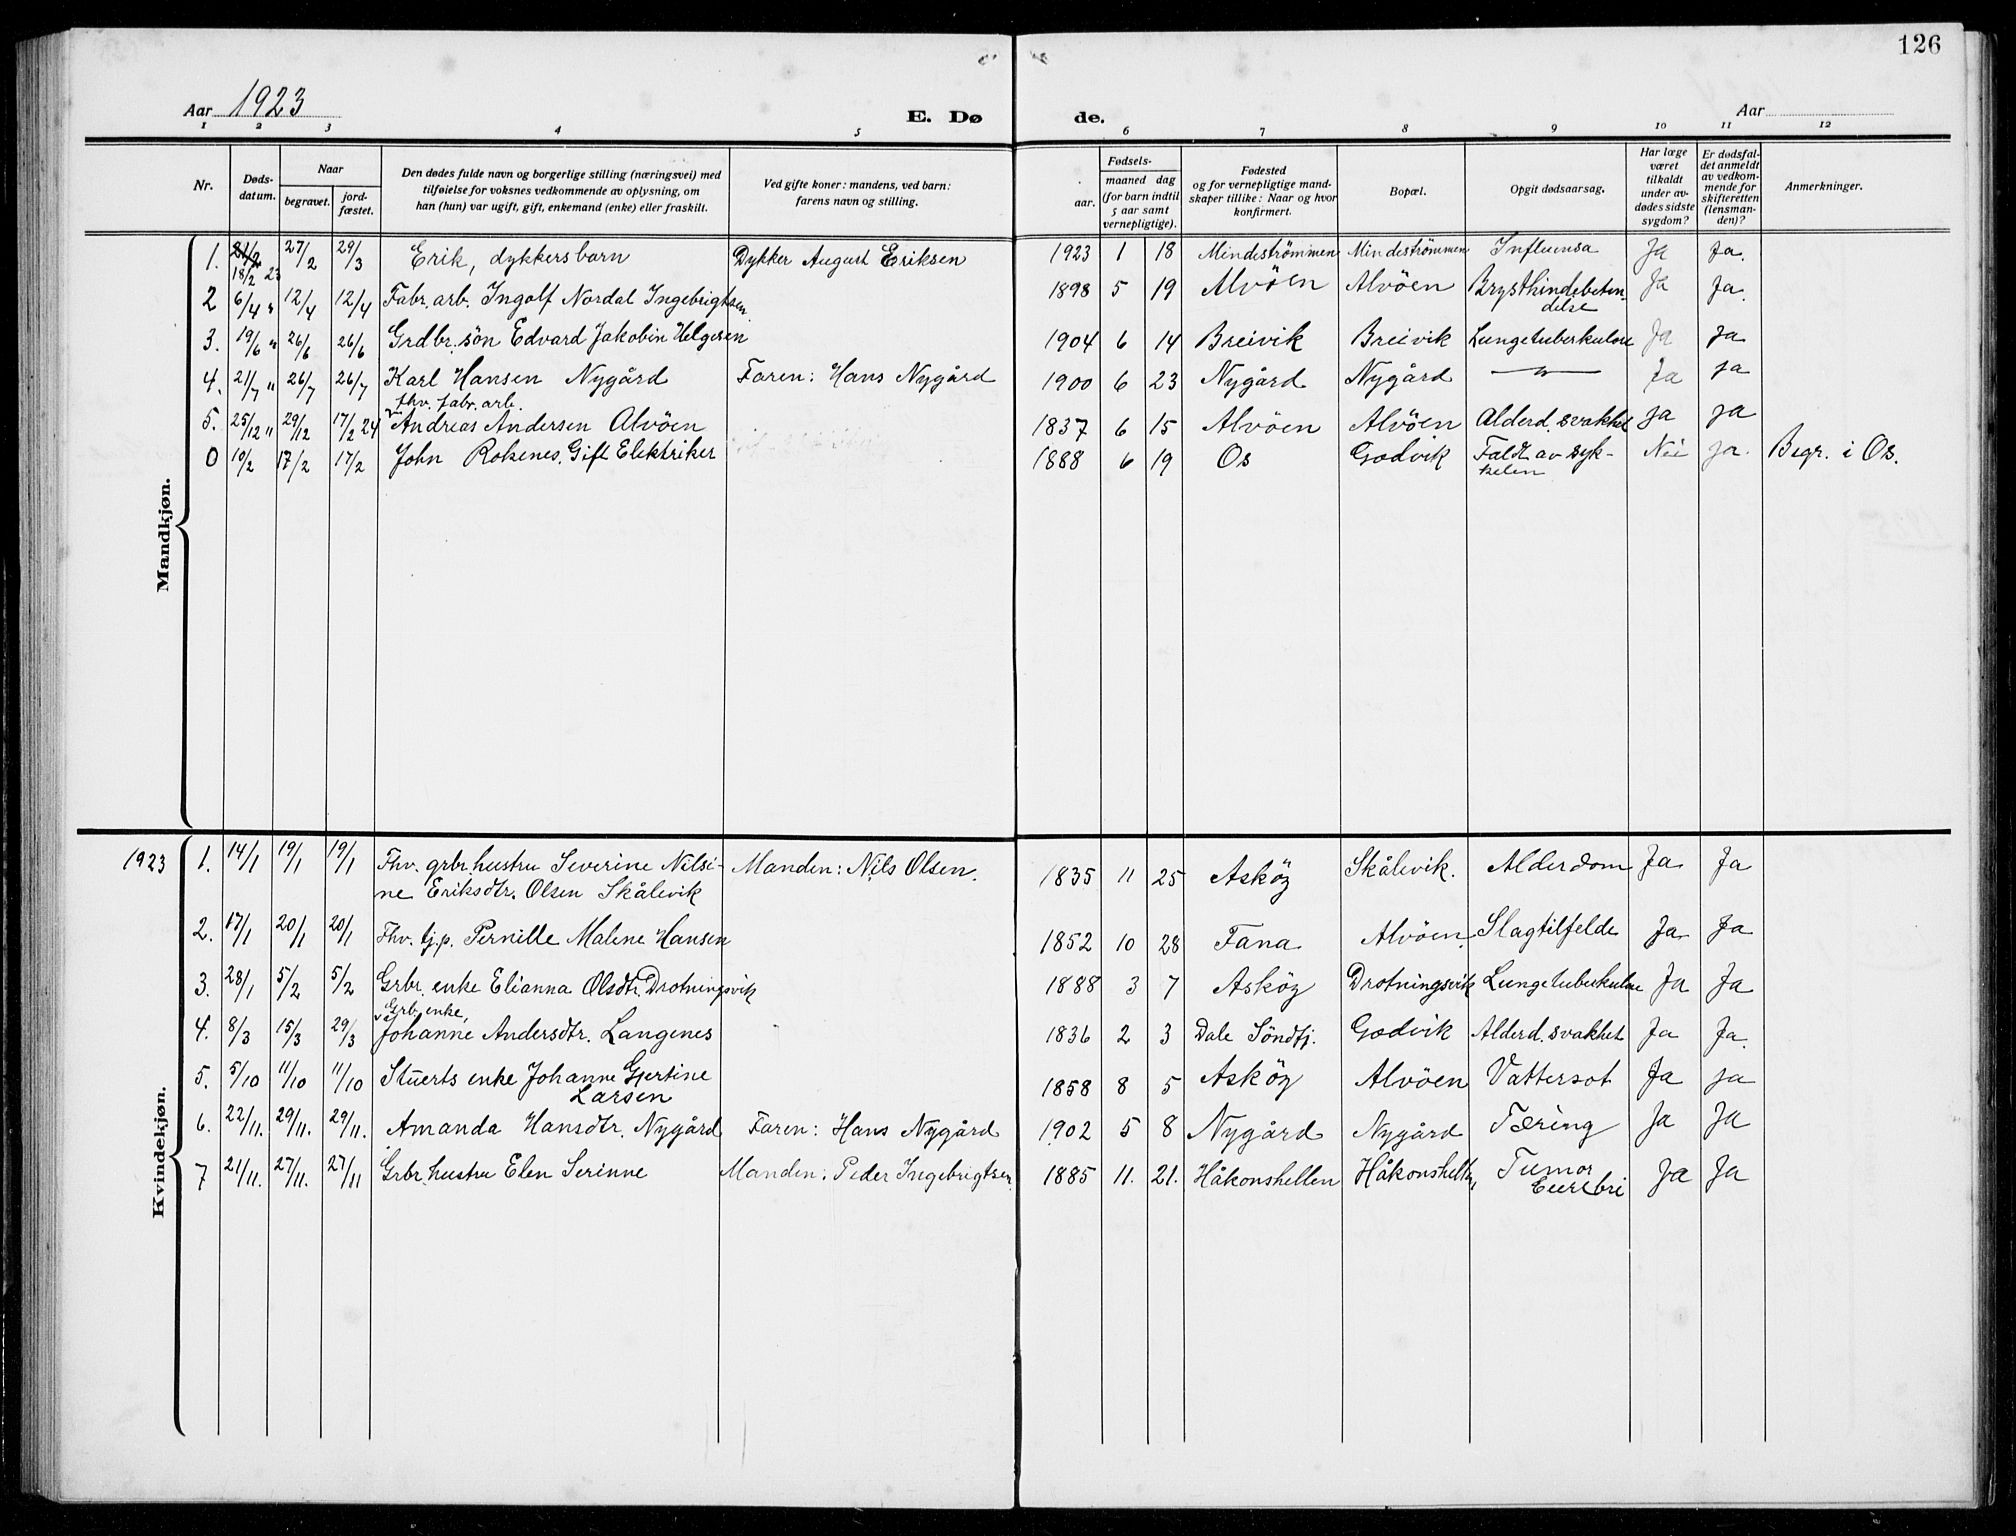 126
Aar 1923
E. Dø de.
Aar
1 2 3 4 5 6 7 8 9 10 11 12
Nr.
Døds-datum.
Naar
begravet.
jord-fæstet.
Den dødes fulde navn og borgerlige stilling (næringsvei) med
tilføielse for voksnes vedkommende av oplysning, om
han (hun) var ugift, gift, enkemand (enke) eller fraskilt.
Ved gifte koner: mandens, ved barn:
farens navn og stilling.
Fødsels-
aar. maaned dag
(for barn indtil
5 aar samt
vernepligtige).
Fødested
og for vernepligtige mand-
skaper tillike: Naar og hvor
konfirmert.
Bopæl.
Opgit dødsaarsag.
Har læge
været
tilkaldt
under av-
dødes sidste
sygdom?
Er dødsfal-
det anmeldt
av vedkom-
mende for
skifteretten
(lensman-
den)?
Anmerkninger.
Mandkjøn.
1. 21/2 18/2 23 27/2 29/3 Erik, dykkersbarn Dykker August Eriksen 1923 1 18 Mindeströmmen Mindeströmmen Influensa Ja Ja.
2 6/4 " 12/4 12/4 Fabr. arb. Ingolf Nordal Ingebrigtsen. 1898 5 19 Alvöen Alvöen Brysthindebeten-
delse Ja Ja.
3. 19/6 " 26/6 26/6 Grdbr. sön Edvard Jakobin Helgesen 1904 6 14 Breivik Breivik Lungetuberkulose Ja Ja
4. 21/7 " 26/7 26/7 Karl Hansen Nygård Faren: Hans Nygård 1900 6 23 Nygård Nygård — " — Ja ja
fhv. fabr. arb.
5. 25/12 " 29/12 17/2 24 Andreas Andersen Alvöen 1837 6 15 Alvöen Alvöen Alderd. svakhet ja ja
0 10/2 17/2 17/2 John Rokenes. Gift Elektriker 1888 6 19 Os Godvik Faldt av syk-
kelen Nei ja. Begr. i Os.
Kvindekjøn.
1923 1. 14/1 19/1 19/1 Fhv. grbr. hustru Severine Nilsi-
ne Eriksdtr. Olsen Skålevik Manden: Nils Olsen. 1835 11 25 Asköy Skålevik. Alderdom Ja Ja
2. 17/1 20/1 20/1 Fhv. tj.p. Pernille Malene Hansen 1852 10 28 Fana Alvöen. Slagtilfelde Ja Ja
3. 28/1 5/2 5/2 Grbr. enke Elianna Olsdtr. Drotningsvik 1888 3 7 Asköy Drotningsvik Lungetuberkulose Ja Ja
Grb. enke,
4. 8/3 15/3 29/3 Johanne Andersdtr. Langenes 1836 2 3 Dale Söndfj. Godvik Alderd. svakhet Ja Ja.
5. 5/10 11/10 11/10 Stuerts enke Johanne Gjertine
Larsen 1858 8 5 Asköy Alvöen Vattersot Ja ja
6. 22/11. 29/11. 29/11. Amanda Hansdtr. Nygård Faren: Hans Nygård 1902 5 8 Nygård Nygård Tæring Ja Ja
7 21/11. 27/11. 27/11 Grbr. hustru Elen Serinne Manden: Peder Ingebrigtsen 1885 11. 21. Håkonshellen Håkonshellen Tumor Ja Ja